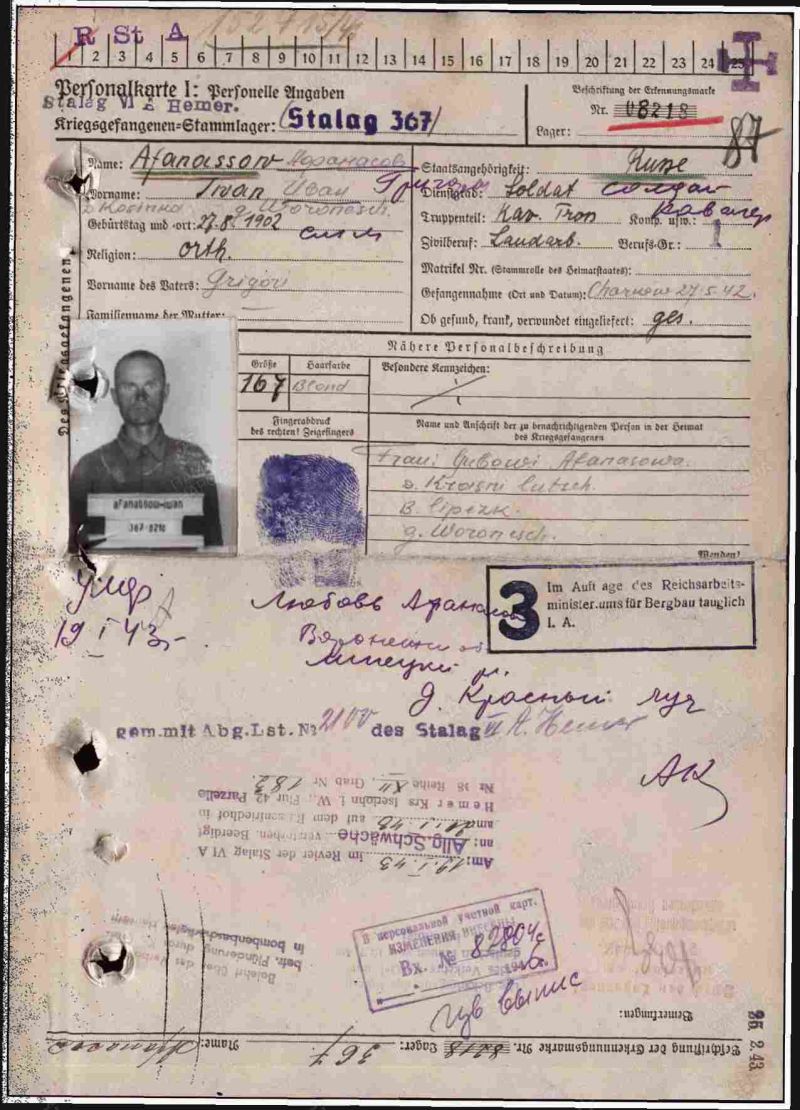 R St A 152715/43
1 2 3 4 5 6 7 8 9 10 11 12 13 14 15 16 17 18 19 20 21 22 23 24 25
Personalkarte I: Personelle Angaben
Stalag VI A Hemer.
Kriegsgefangenen-Stammlager: Stalag 367
Beschriftung der Erkennungsmarke
Nr. 08218
Lager:
87
Des Kriegsgefangenen
Name: Afanassow Афанасов
Vorname: Iwan Иван Григорь
g. Woronesch.
Geburtstag und -ort: 27.8.1902
Religion: orth.
Vorname des Vaters: Grigori
Familienname der Mutter: —
Staatsangehörigkeit: Russe
Dienstgrad: Soldat солдат
Truppenteil: Kav. Tron Komp. usw.: кавалер
Zivilberuf: Landarb. Berufs-Gr.: 1
Matrikel Nr. (Stammrolle des Heimatstaates):
Gefangennahme (Ort und Datum): Charkow 27.5.42.
Ob gesund, krank, verwundet eingeliefert: ges.
Nähere Personalbeschreibung
Größe Haarfarbe Besondere Kennzeichen:
167 Blond
Fingerabdruck
des rechten! Zeigefingers
Name und Anschrift der zu benachrichtigenden Person in der Heimat
des Kriegsgefangenen
Frau: Ljubowi Afanasowa.
o. Krasni lutsch.
B. lipezk.
g. Woronesch.
Wenden!
afanassow-iwan
367-8218
умр
19 I 43.-
Любовь Афанасов
Воронежи об
Липецкий р.
д. Красный луч
3 Im Auft age des Reichsarbeits-
minister.ums für Bergbau tauglich
I. A.
gem.mit Abg.Lst.№ 2100 des Stalag VI A. Hemer
АК
Am: 19.I.43 im Revier der Stalag VI A
an: Allg.Schwäche verstorben. Beerdigt
am 21.I.43 auf dem Russenfriedhof in
Hemer Krs Iserlohn i. W.; Flur 42 Parzelle
Nr 38 Reihe XII, Grab Nr 182
Belehrt über das Verbot
betr. Plünderung durch
in bombenbeschädigten
В персональной учетной карт.
ИЗМЕНЕНИЯ ВНЕСЕНЫ
Вх. № 82804с
194 г.
Bemerkungen:
Beschriftung der Erkennungsmarke Nr. 8218 Lager: 367 Name: Afanasow
25.2.43